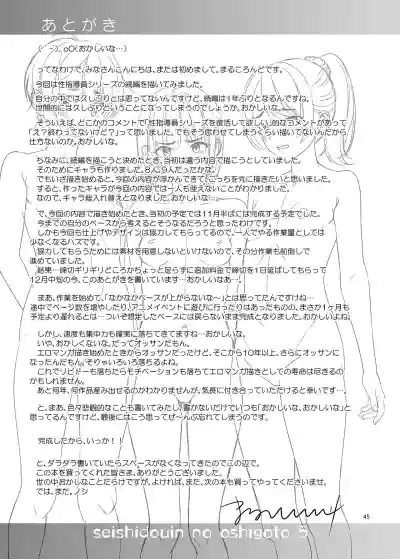 あとがき
(´-)_oO(おかしいな…)
ってなわけで、みなさんこんにちは、または初めまして。まるころんどです。
今回は性指導員シリーズの続編を描いてみました。
自分の中では久しぶりとは思ってないんですけど、続編は1年ぶりとなるんですね。
世間的には久しぶりということになってしまうのでしょうか。おかしいな。
そういえば、どこかのコメントで「性指導員シリーズを復活して欲しい」的なコメントがあって
「え？終わってないけど？」って思いました。でもそう思わせてしまうくらい描いてないんだから、
仕方ないのか。おかしいな。
ちなみに、続編を描こうと決めたとき、当初は違う内容で描こうとしていました。
そのためにキャラも作りました。8人、9人だったかな。
でもいざ描き始めると、今回の内容が浮かんできて、こっちを先に描きたいと思いました。
すると、作ったキャラが今回の内容では一人も使えないことがわかりました。
なので、キャラ総入れ替えとなりました。おかしいな…
で、今回の内容で描き始めたとき、当初の予定では11月半ばには完成する予定でした。
今までの自分のペースから考えるとそうなるだろうと思ったわけです。
しかも今回も仕上げやデザインは協力してもらってるので、一人でやる作業量としては
少なくなるハズです。
協力してもらうためには素材を用意しないといけないので、その分作業も前倒しで
進めていました。
結果…締切ギリギリどころかちょっと足らずに追加料金で締切を1日延ばしてもらって
12月中旬の今、このあとがきを書いています…おかしいなあ…
まあ、作業を始めて、「なかなかペースが上がらないな～」とは思ってたんですけどね…
途中でページ数を増やしたり、アニメイベントに遊びに行ったりはあったものの、まさか1ヶ月も
予定より遅れるとは…ついぞ想定したペースには戻らないまま完成となりました。おかしいよね。
しかし、速度も集中力も確実に落ちてきてますね…おかしいな。
いや、おかしくないな。だってオッサンだもん。
エロマンガ描き始めたときからオッサンだったけど、そこから10年以上、さらにオッサンに
なったんだもん。そりゃいろいろ落ちるよね。
これでリビドーも落ちたらモチベーションも落ちてエロマンガ描きとしての寿命は尽きるの
かもしれません。
あと何年、何作品産み出せるのかわかりませんが、気長に付き合っていただけると幸いです…
と、まあ、色々悲観的なことも書いてみたし、書かないだけでいつも「おかしいな、おかしいな」と
思ってるんですけど、最後にはこう思ってぜ～んぶ忘れてしまうのです。
完成したから、いっか！！
と、ダラダラ書いていたらスペースがなくなってきたのでこの辺で。
この本を買ってくれた皆さま、ありがとうございました。
世の中おかしなことだらけですが、よければ、また、次の本も買ってやってくださいませ。
では、また。ノシ
45
seishidouin no oshigoto 5